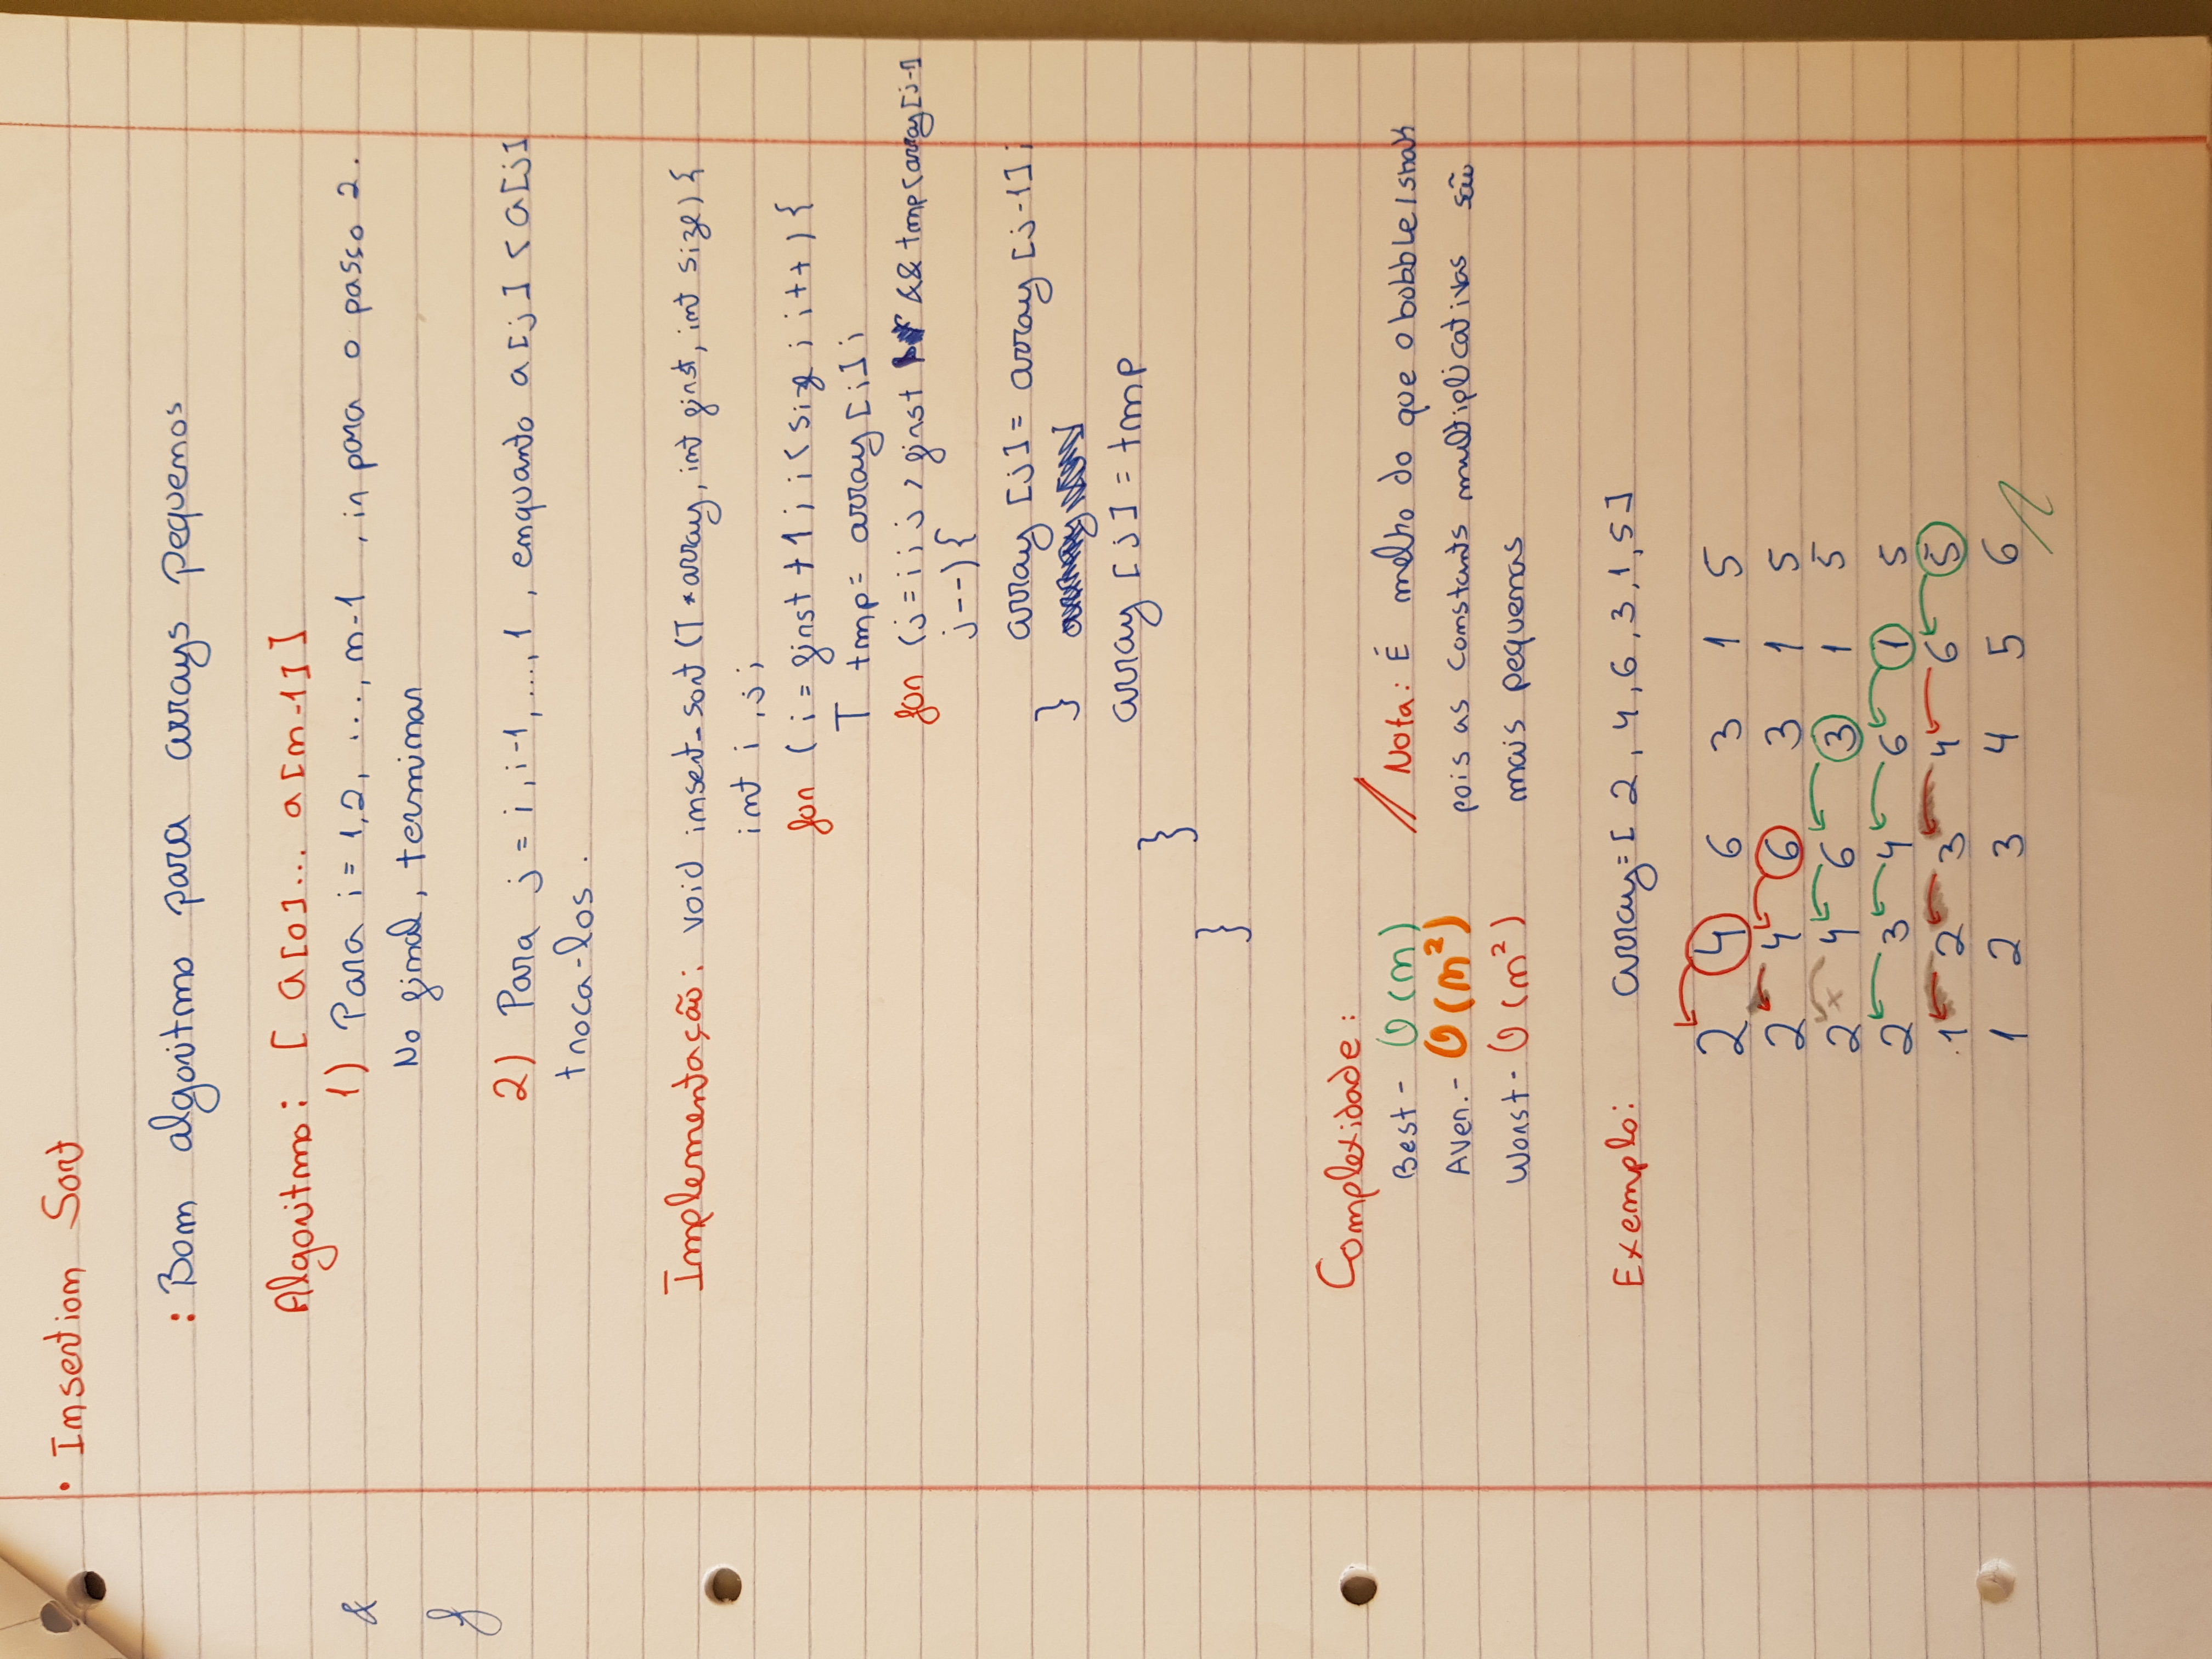 • Insertion Sort
: Bom algoritmo para arrays pequenos
Algoritmo: [ a[0]... a[n-1] ]
1) Para i = 1,2, ..., n-1 , ir para o passo 2.
&
No final, terminar
f
2) Para j = i, i-1, ..., 1 , enquanto a[j] < a[j]
troca-los.
Implementação: void insert_sort (T *array, int first, int size) {
int i, j;
for ( i = first + 1 ; i < size ; i++ ) {
T tmp = array[i];
for (j = i ; j > first && tmp < array[j-1]
j--) {
array [j] = array [j-1];
}
array [j] = tmp
}
}
Complexidade:
Best - O(n) // Nota: É melho do que o bobble/shak
Aver. - O(n²) pois as constants multiplicativas são
Worst - O(n²) mais pequenas
Exemplo: array = [ 2, 4, 6, 3, 1, 5 ]
2 4 6 3 1 5
2 4 6 3 1 5
2 x 4 6 3 1 5
2 3 4 6 1 5
1 2 3 4 6 5
1 2 3 4 5 6